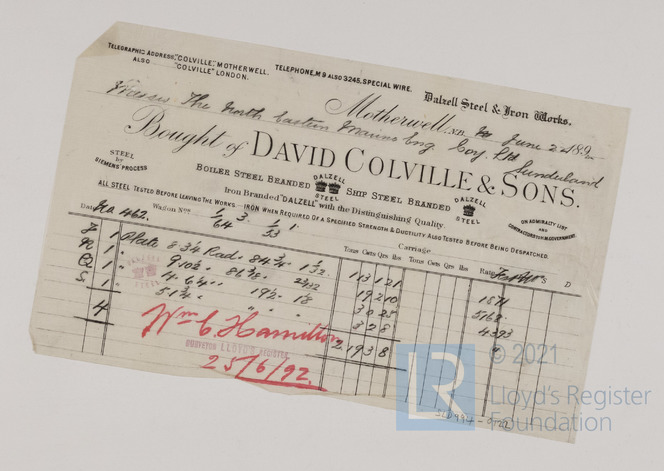 TELEGRAPHIC ADDRESS, "COLVILLE," MOTHERWELL.
ALSO "COLVILLE" LONDON.
TELEPHONE, M 9 ALSO 3245, SPECIAL WIRE.
Dalzell Steel & Iron Works.
Motherwell, N.B. June 2 189
Messrs The North Eastern Marine Eng Coy Ltd Sunderland
Bought of DAVID COLVILLE & SONS.
STEEL
by
SIEMENS' PROCESS
BOILER STEEL BRANDED DALZELL STEEL SHIP STEEL BRANDED DALZELL STEEL
Iron Branded "DALZELL" with the Distinguishing Quality.
ON ADMIRALTY LIST
AND
CONTRACTORS TO H.M. GOVERNMENT.
ALL STEEL TESTED BEFORE LEAVING THE WORKS — IRON WHEN REQUIRED OF A SPECIFIED STRENGTH & DUCTILITY ALSO TESTED BEFORE BEING DESPATCHED.
462. Wagon Nos 1/64 3. 1/23 1.
Carriage
Tons Cwts Qrs lbs Tons Cwts Qrs lbs Rate S D
1 Plate 1 13 1 21
1 " 19 2 10 1571
1 " 3 0 25 5168
1 " 3 2 8 4393
4 2 19 3 8
Wm C. Hamilton
SURVEYOR LLOYD'S REGISTER
25/6/92.
LR
© 2021
Lloyd's Register
Foundation